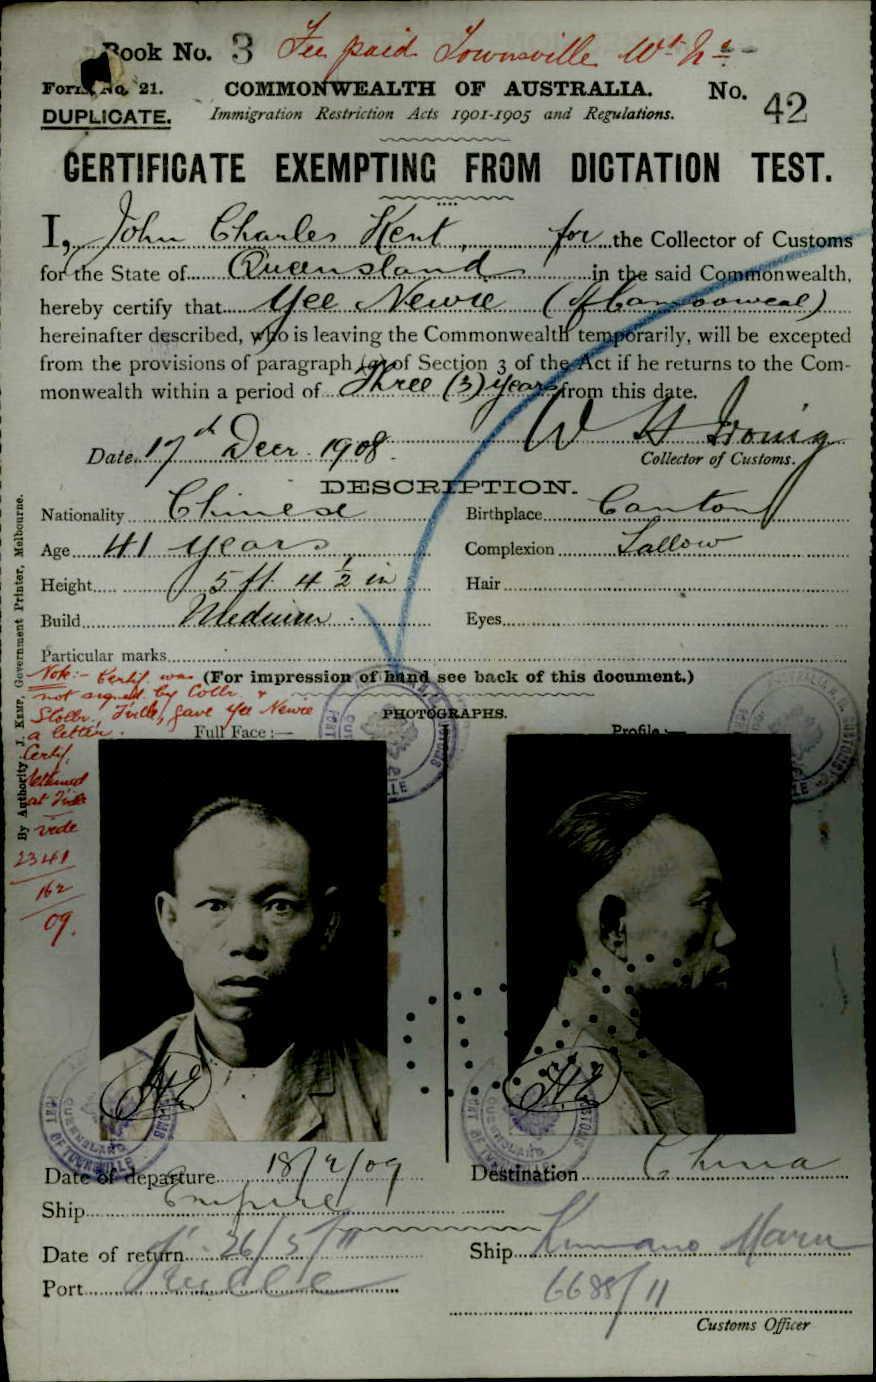 Book No. 3 Fee paid Townsville
Form No. 21. COMMONWEALTH OF AUSTRALIA. No. 42
DUPLICATE. Immigration Restriction Acts 1901-1905 and Regulations.
CERTIFICATE EXEMPTING FROM DICTATION TEST.
I, John Charles Kent, for the Collector of Customs
for the State of Queensland in the said Commonwealth,
hereby certify that Yee Newie (of Camooweal)
hereinafter described, who is leaving the Commonwealth temporarily, will be excepted
from the provisions of paragraph (a) of Section 3 of the Act if he returns to the Com-
monwealth within a period of Three (3) years from this date.
Date 17th Decr 1908 W H Irving
Collector of Customs.
DESCRIPTION.
Nationality Chinese Birthplace Canton
Age 41 years Complexion Sallow
Height 5 ft 4 1/2 in Hair
Build Medium Eyes
Particular marks
(For impression of hand see back of this document.)
Note:- Certif. was
not signed by Collr. &
gave Yee Newie
a letter.
Certif.
at
vide
2341
162
09.
PHOTOGRAPHS.
Full Face :— Profile :—
By Authority: J. KEMP, Government Printer, Melbourne.
PORT OF TOWNSVILLE
QUEENSLAND
CUSTOMS
Date of departure 18/2/09 Destination China
Ship Empire
Date of return 26/5/11 Ship Kumano Maru
Port 6688/11
Customs Officer